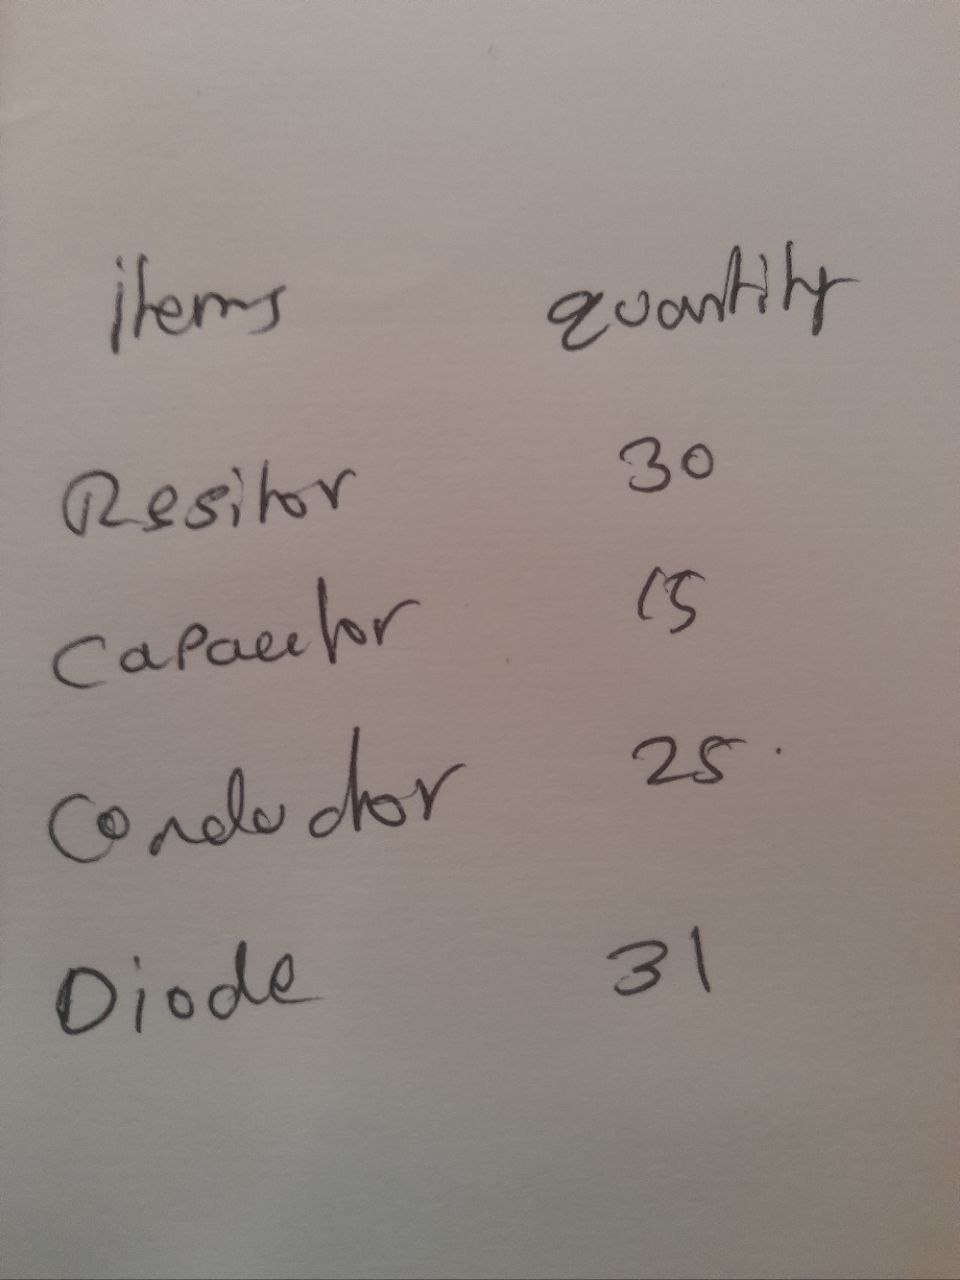 items quantity
Resitor 30
Capacitor 15
Conductor 25
Diode 31